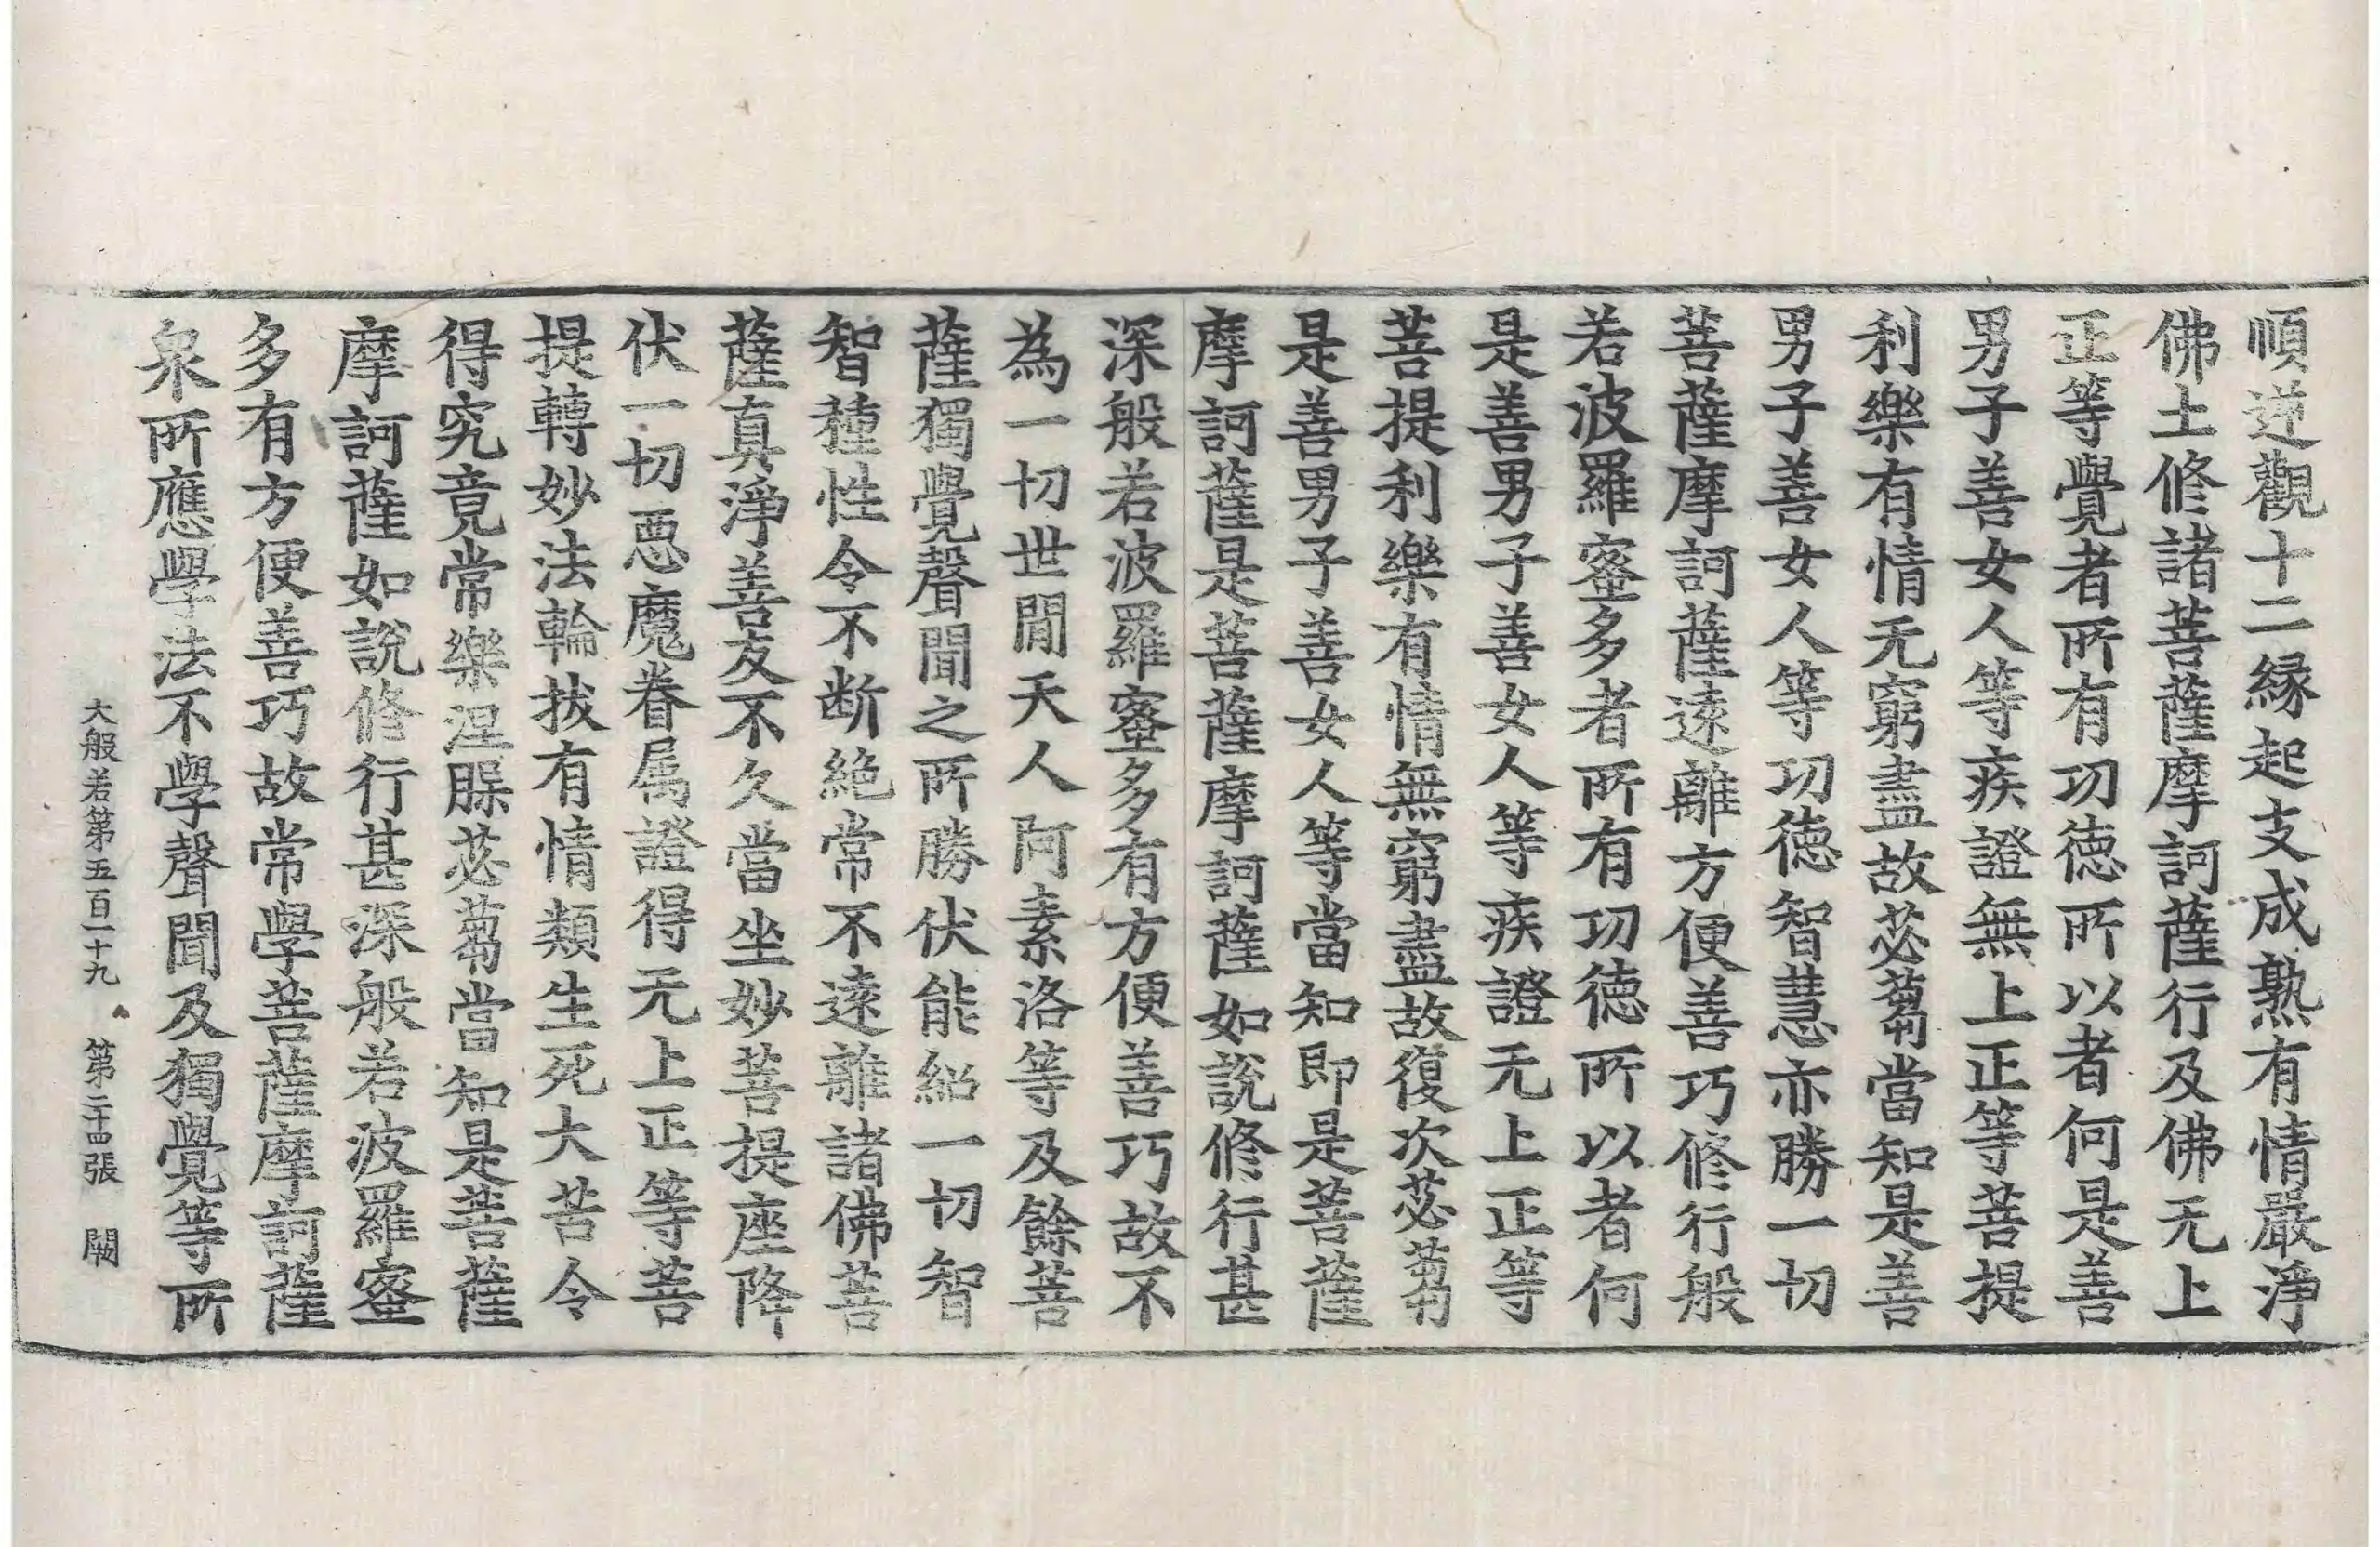 順逆觀十二緣起支成熟有情嚴淨
佛土修諸菩薩摩訶薩行及佛无上
正等覺者所有功德所以者何是善
男子善女人等疾證無上正等菩提
利樂有情无窮盡故苾蒭當知是善
男子善女人等功德智慧亦勝一切
菩薩摩訶薩遠離方便善巧修行般
若波羅蜜多者所有功德所以者何
是善男子善女人等疾證无上正等
菩提利樂有情無窮盡故復次苾蒭
是善男子善女人等當知即是菩薩
摩訶薩是菩薩摩訶薩如說修行甚
深般若波羅蜜多有方便善巧故不
為一切世間天人阿素洛等及餘菩
薩獨覺聲聞之所勝伏能紹一切智
智種性令不断絕常不遠離諸佛菩
薩真淨善友不久當坐妙菩提座降
伏一切惡魔眷属證得无上正等菩
提轉妙法輪拔有情類生死大苦令
得究竟常樂涅脲苾蒭當知是菩薩
摩訶薩如說修行甚深般若波羅蜜
多有方便善巧故常學菩薩摩訶薩
衆所應學法不學聲聞及獨覺等所
大般若第五百一十九 第二十四張 闕